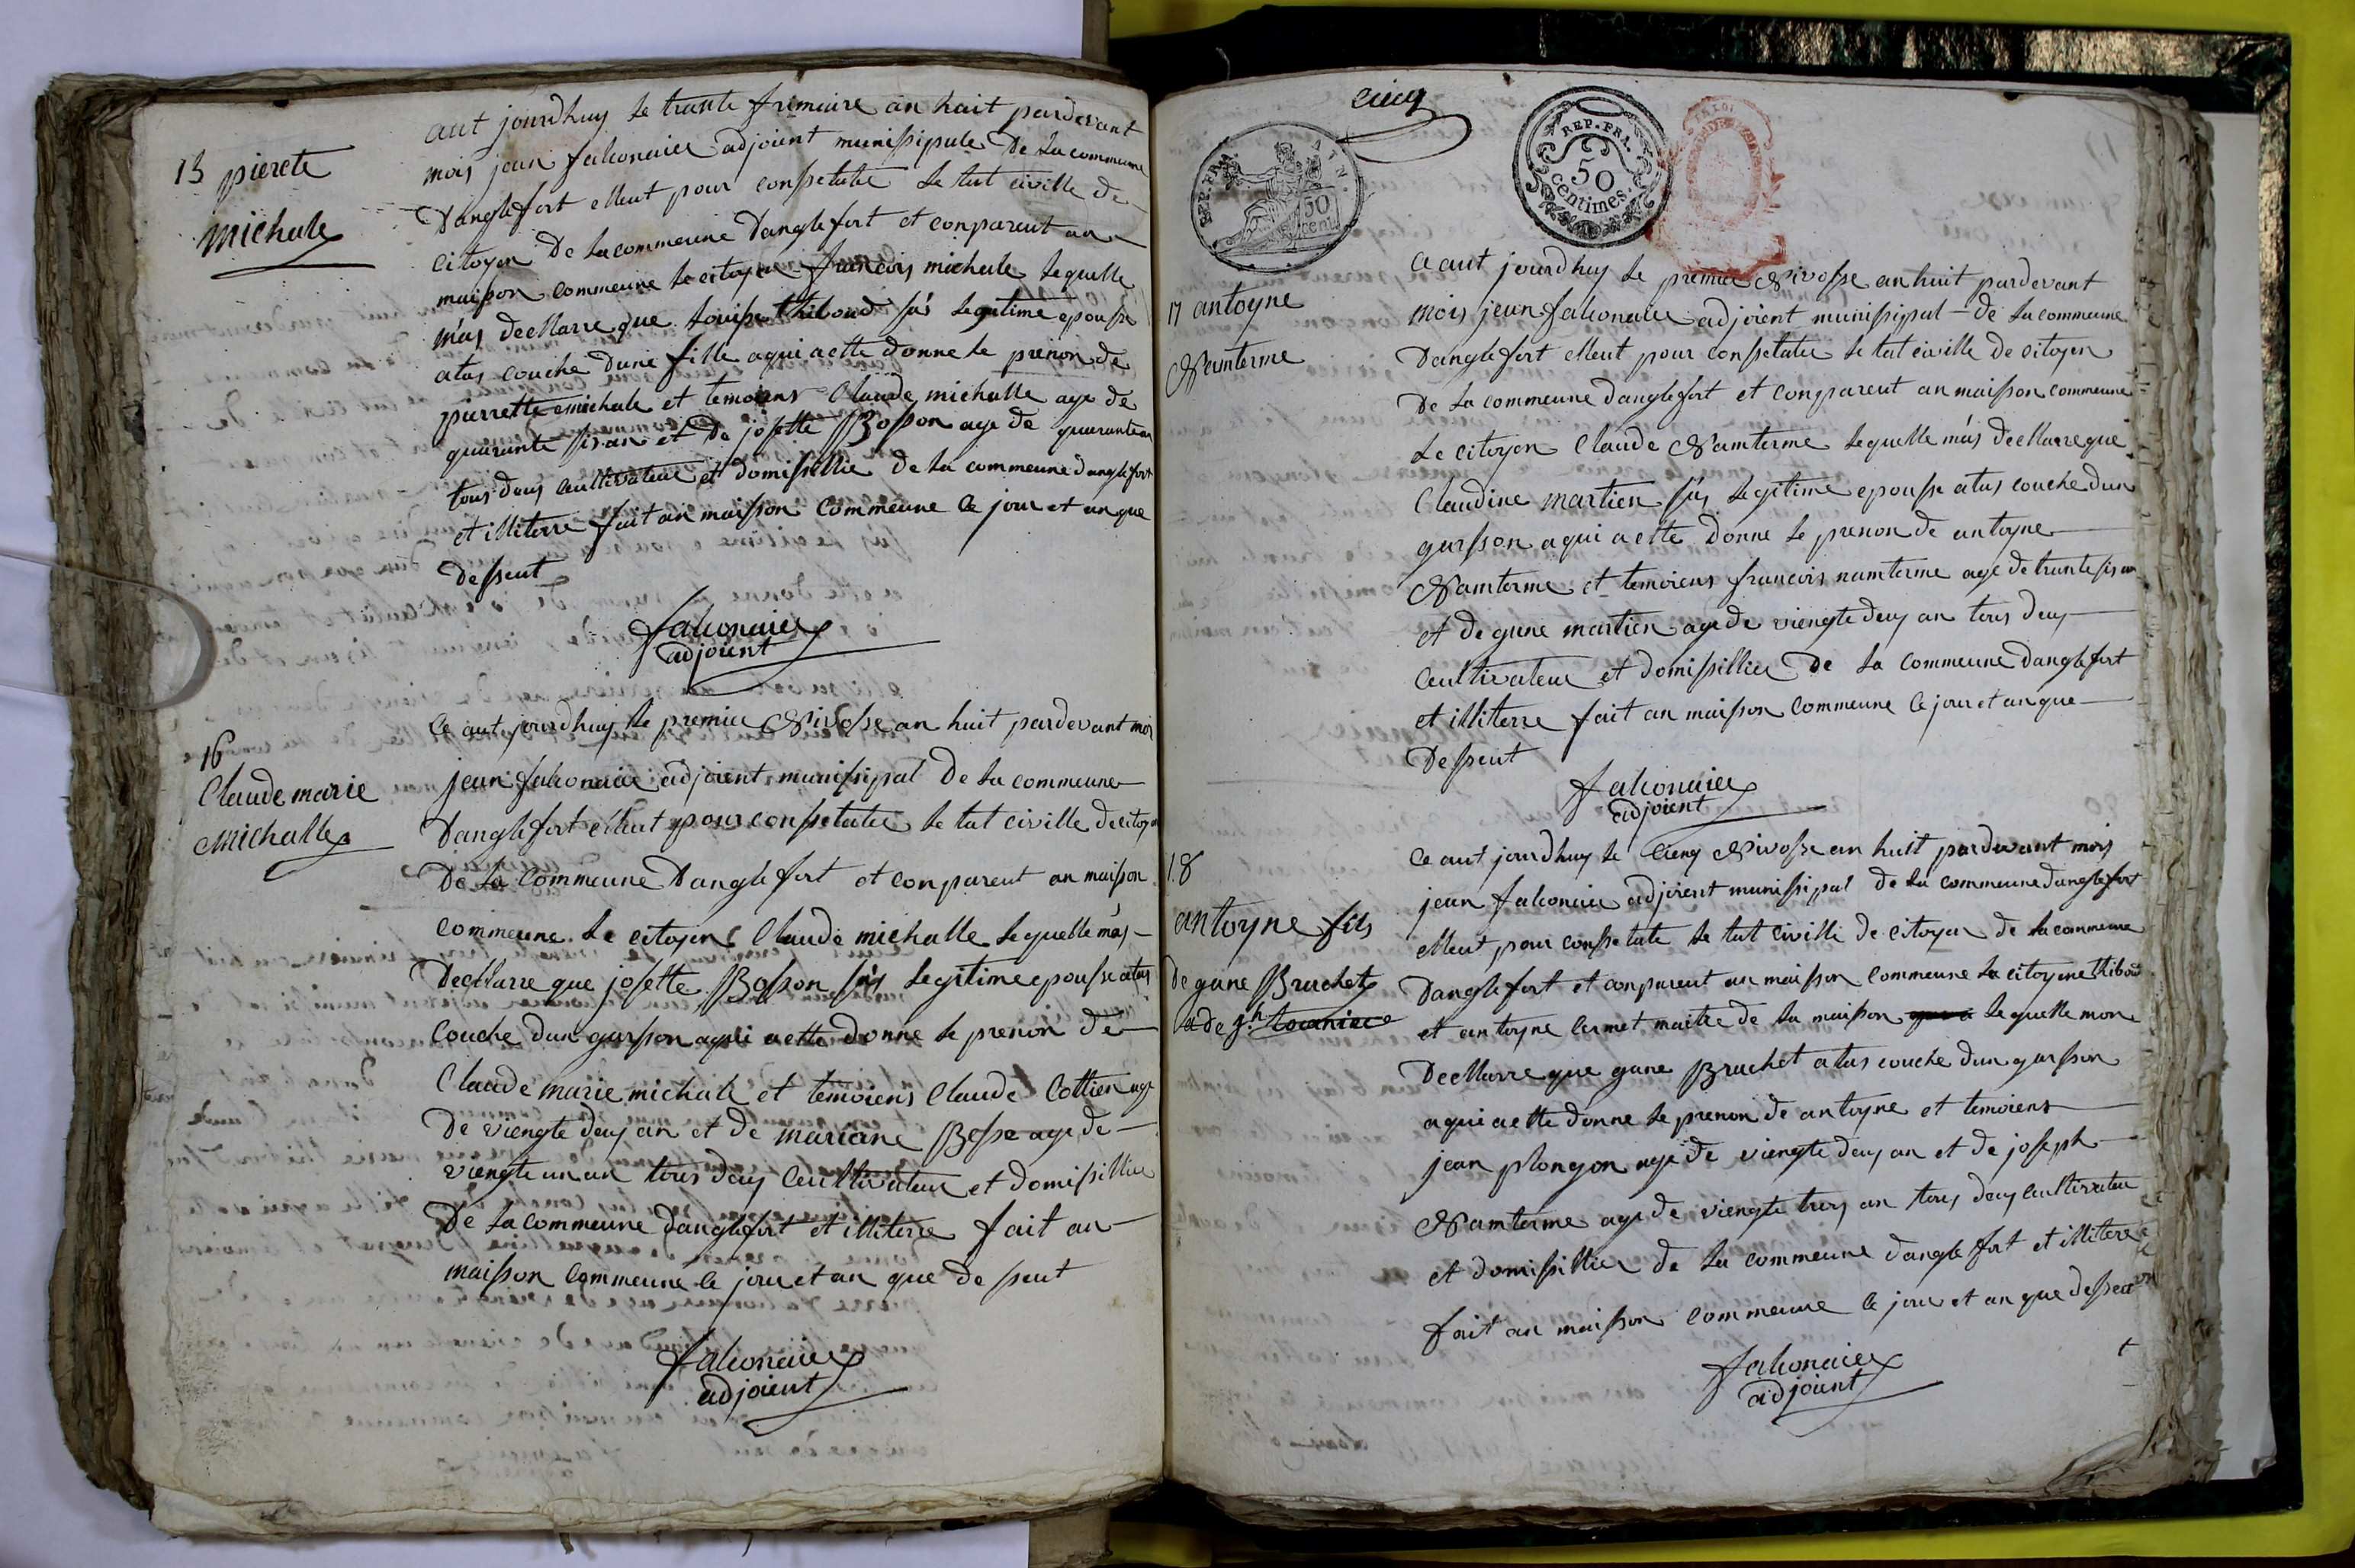 15 pierete
michale
aut jourdhuy le trante frimaire an huit pardevant
mois jean falconnier adjoient munissipale De la commeune
Danglefort elleut pour conssetater le tat civille de
citoyen De la commeune Danglefort et conparent an
maisson commeune le citoyen francois michale lequelle
m'as decllarre que louise thiboud sa's legitime epousse
atas couche dune fille aqui aette donne le prenon de
pierrette michale et temoiens Claude michalle age de
quarante sis an et de josette Bosson age de quarante an
tous deus cultivateur et domissillie de la commeune danglefort
et illiterre fait an maisson commeune ce jour et an que
dessent
falconnier
adjoient
16
Claude marie
michalle
Ce aut jourdhuy le premier Nivosse an huit pardevant mois
jean falconnier adjoient munissipal De la commeune
Danglefort elleut pour conssetater le tat civille de citoyen
De la commeune Danglefort et conparent an maisson
commeune le citoyen Claude michalle lequelle m'as
Decllarre que josette Bosson sa's legitime epousse atas
couche dun garsson aqui aette donne le prenon de
Claude marie michale et temoiens Claude Cottien age
De viengte deuy an et de mariane Bosse age de
viengte un an tous deuy cultivateur et domissillier
De la commeune danglefort et illiterre fait an
maisson commeune ce jour et an que de sseut
falconnier
adjoient
cincq
REP. FRA. 50 cent.
REP. FRA. 50 centimes.
17 antoyne
Namterme
Ce aut jourdhuy le premier Nivosse an huit pardevant
mois jean falconnier adjoient munissipal de la commeune
Danglefort elleut pour conssetater le tat civille de citoyen
De la commeune danglefort et conparent an maisson commeune
Le citoyen Claude Namterme lequelle m'as decllarre que
Claudine martien sa's legitime epousse atas couche dun
garsson aqui aette donne le prenon de antoyne
Namterme et temoiens francois namterme age de trante sis an
et de gune martien age de viengte deuy an tous deuy
cultivateur et domissillier De la commeune danglefort
et illiterre fait an maisson commeune ce jour et an que
Desseut
falconnier
adjoient
18
antoyne fils
de gune Bruchet
Ce aut jourdhuy le cienq Nivosse an huit pardevant mois
jean falconnier adjoient munissipal de la commeune danglefort
elleut pour conssetate le tat civille de citoyen de la commeune
Danglefort et conparent an maisson commeune la citoyene thiboud
et antoyne Carmet maitre de la maisson lequelle mon
Decllarre que gune Bruchet atas couche dun garsson
aqui aette donne le prenon de antoyne et temoiens
jean plongon age de viengte deuy an et de joseph
Namterme age de viengte troy an tous deuy cultivateur
et domissillier de la commeune danglefort et illitere
fait an maisson commeune ce jour et an que desseut
falconnier
adjoient